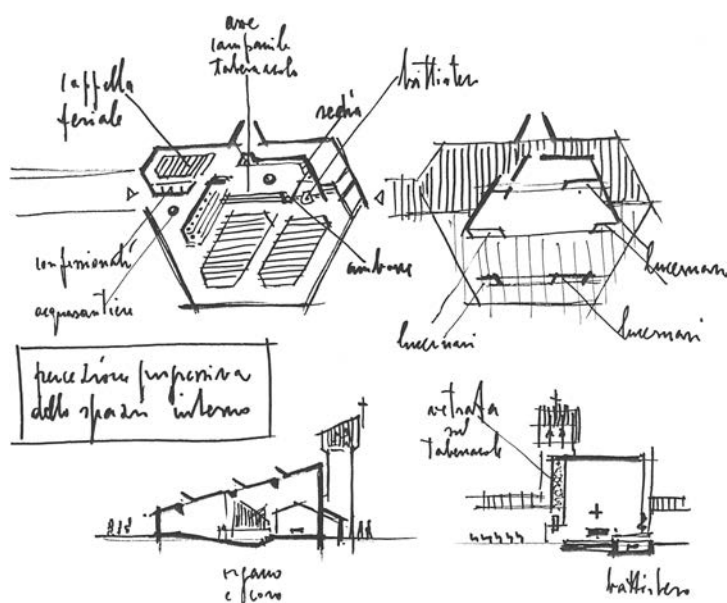 asse
campanile
tabernacolo
cappella
feriale
sedia
battistero
confessionali
acquasantiere
ambone
lucernari
lucernari
lucernari
percezione progressiva
dello spazio interno
vetrata
sul
tabernacolo
organo
e coro
battistero